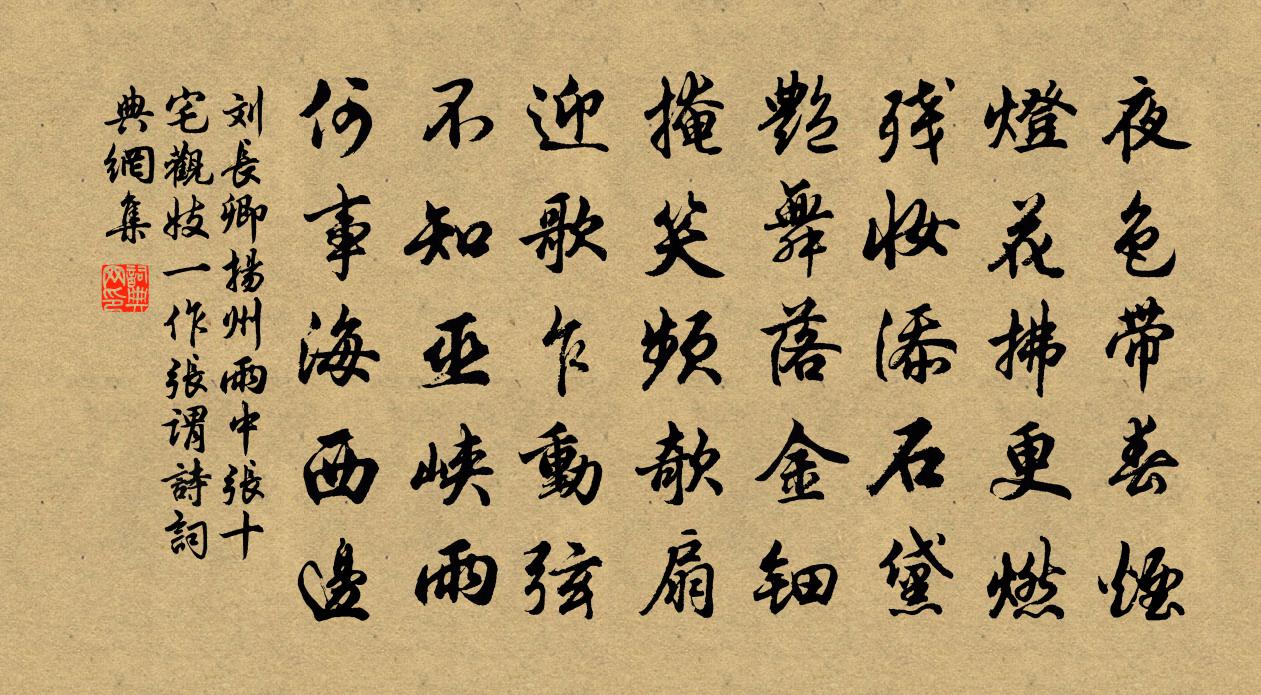 夜色带春煙
燈花拂更燃
残妆添石黛
艶舞落金钿
掩笑频欹扇
迎歌乍動弦
不知巫峡雨
何事海西邊
刘長卿揚州雨中張十
宅觀妓一作張謂詩詞
典網集
詞典
网印